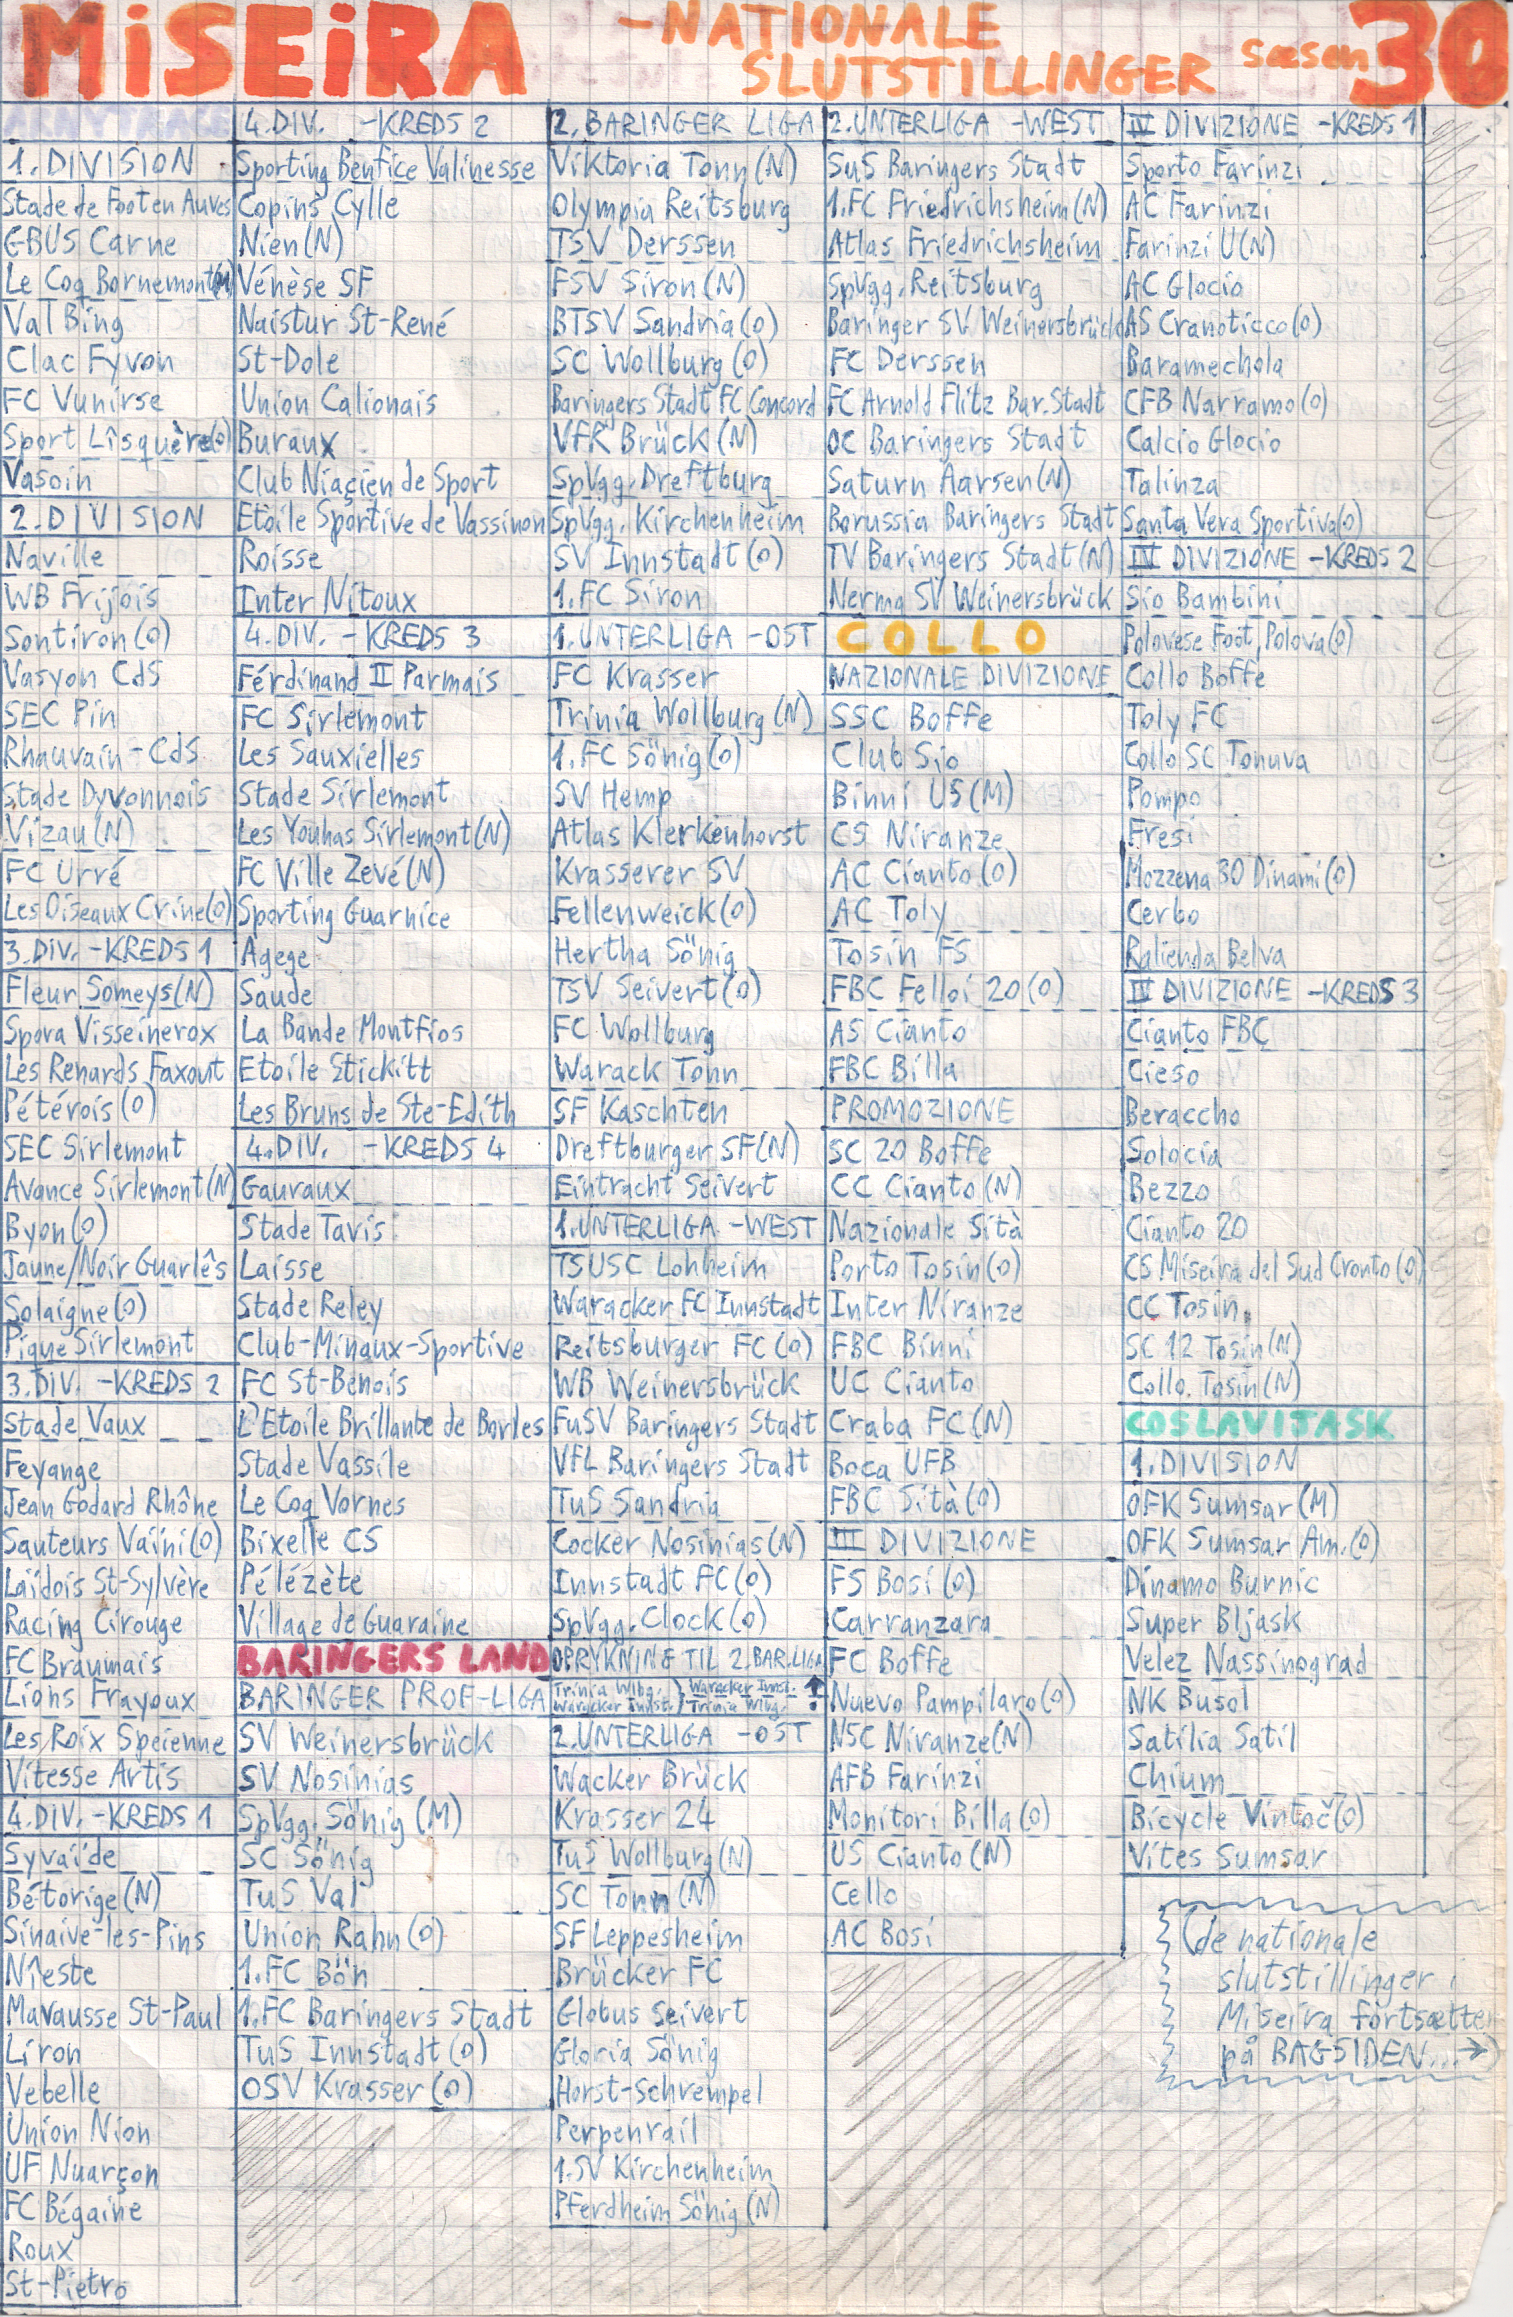 MiSEiRA
-NATIONALE
SLUTSTILLINGER
sæson 30
1. DIVISION
Stade de Footen Auves
GBUS Carne
Le Coq Bornemont(M)
Val Bing
Clac Fyvon
FC Vunirse
Sport Lîsquère(O)
Vasoin
2. DIVISION
Naville
WB Frijois
Sontiron(O)
Vasyon CdS
SEC Pin
Rhauvain-CdS
Stade Dyvonnois
Vizau(N)
FC Urré
Les Oiseaux Crine(O)
3. DIV. -KREDS 1
Fleur Someys(N)
Spora Visseinerox
Les Renards Faxout
Pétérois(O)
SEC Sirlemont
Avance Sirlemont(N)
Byon(O)
Jaune/Noir Guarlês
Solaigne(O)
Pique Sirlemont
3. DIV. -KREDS 2
Stade Vaux
Feyange
Jean Godard Rhône
Sauteurs Vaïni(O)
Laïdois St-Sylvère
Racing Cirouge
FC Braumais
Lions Frayoux
Les Roix Speienne
Vitesse Artis
4. DIV. -KREDS 1
Syvaïde
Bétorige(N)
Sinaive-les-Pins
Nîeste
Mavausse St-Paul
Liron
Vebelle
Union Nion
UF Nuarçon
FC Bégaine
Roux
St-Pietro
4. DIV. -KREDS 2
Sporting Benfice Valinesse
Copins Cylle
Nien(N)
Vénèse SF
Naistur St-René
St-Dole
Union Calionais
Buraux
Club Niaçien de Sport
Etoile Sportive de Vassinon
Roisse
Inter Nitoux
4. DIV. -KREDS 3
Férdinand II Parmais
FC Sirlemont
Les Sauxielles
Stade Sirlemont
Les Youhas Sirlemont(N)
FC Ville Zevé(N)
Sporting Guarnice
Agege
Saude
La Bande Montfios
Etoile Stickitt
Les Bruns de Ste-Edith
4. DIV. -KREDS 4
Gauraux
Stade Tavis
Laisse
Stade Reley
Club-Minaux-Sportive
FC St-Benois
L'Etoile Brillante de Borles
Stade Vassile
Le Coq Vornes
Bixelle CS
Pélézète
Village de Guaraine
BARINGERS LAND
BARINGER PROF-LIGA
SV Weinersbrück
SV Nosinias
SpVgg. Sönig (M)
SC Sönig
TuS Val
Union Rahn(O)
1.FC Bön
1.FC Baringers Stadt
TuS Innstadt(O)
OSV Krasser(O)
2. BARINGER LIGA
Viktoria Tonn(N)
Olympia Reitsburg
TSV Derssen
FSV Siron(N)
BTSV Sandria(O)
SC Wollburg(O)
Baringers Stadt FC Concord
VFR Brück(N)
SpVgg. Dreftburg
SpVgg. Kirchenheim
SV Innstadt(O)
1.FC Siron
1. UNTERLIGA -OST
FC Krasser
Trinia Wollburg(N)
1.FC Sönig(O)
SV Hemp
Atlas Klerkenhorst
Krasserer SV
Fellenweick(O)
Hertha Sönig
TSV Seivert(O)
FC Wollburg
Warack Tonn
SF Kaschten
Dreftburger SF(N)
Eintracht Seivert
1. UNTERLIGA -WEST
TSUSC Lohheim
Waracker FC Innstadt
Reitsburger FC(O)
WB Weinersbrück
FuSV Baringers Stadt
VfL Baringers Stadt
TuS Sandria
Cocker Nosinias(N)
Innstadt FC(O)
SpVgg. Clock(O)
OPRYKNING TIL 2.BAR.LIGA
Trinia Wlbg. Waracker Innst.
Waracker Innst. Trinia Wlbg.
2. UNTERLIGA -OST
Wacker Brück
Krasser 24
TuS Wollburg(N)
SC Tonn(N)
SF Leppesheim
Brücker FC
Globus Seivert
Gloria Sönig
Horst-Schrempel
Perpenrail
1.SV Kirchenheim
Pferdheim Sönig(N)
2. UNTERLIGA -WEST
SuS Baringers Stadt
1.FC Friedrichsheim(N)
Atlas Friedrichsheim
SpVgg. Reitsburg
Baringer SV Weinersbrück
FC Derssen
FC Arnold Flitz Bar.Stadt
OC Baringers Stadt
Saturn Aarsen(N)
Borussia Baringers Stadt
TV Baringers Stadt(N)
Nerma SV Weinersbrück
COLLO
NAZIONALE DIVIZIONE
SSC Boffe
Club Sio
Binni US(M)
CS Niranze
AC Cianto(O)
AC Toly
Tosin FS
FBC Felloi 20(O)
AS Cianto
FBC Billa
PROMOZIONE
SC 20 Boffe
CC Cianto(N)
Nazionale Sità
Porto Tosin(O)
Inter Niranze
FBC Binni
UC Cianto
Craba FC(N)
Boca UFB
FBC Sità(O)
III DIVIZIONE
FS Bosi(O)
Carranzara
FC Boffe
Nuevo Pampilaro(O)
NSC Niranze(N)
AFB Farinzi
Monitori Billa(O)
US Cianto(N)
Cello
AC Bosi
IV DIVIZIONE -KREDS 1
Sporto Farinzi
AC Farinzi
Farinzi U(N)
AC Glocio
AS Cranoticco(O)
Baramechola
CFB Narramo(O)
Calcio Glocio
Talinza
Santa Vera Sportiva(O)
IV DIVIZIONE -KREDS 2
Sio Bambini
Polovese Foot, Polova(O)
Collo Boffe
Toly FC
Collo SC Tonuva
Pompo
Fresi
Mozzena 30 Dinami(O)
Cerbo
Ralienda Belva
IV DIVIZIONE -KREDS 3
Cianto FBC
Cieso
Beraccho
Solocia
Bezzo
Cianto 20
CS Miseira del Sud Cronto(O)
CC Tosin
SC 12 Tosin(N)
Collo. Tosin(N)
COSLAVITASK
1. DIVISION
OFK Sumsar(M)
OFK Sumsar Am.(O)
Dinamo Burnic
Super Bljask
Velez Nassinograd
NK Busol
Satilia Satil
Chium
Bicycle Vintoč(O)
Vites Sumsar
(de nationale
slutstillinger i
Miseira fortsætter
på BAGSIDEN...→)